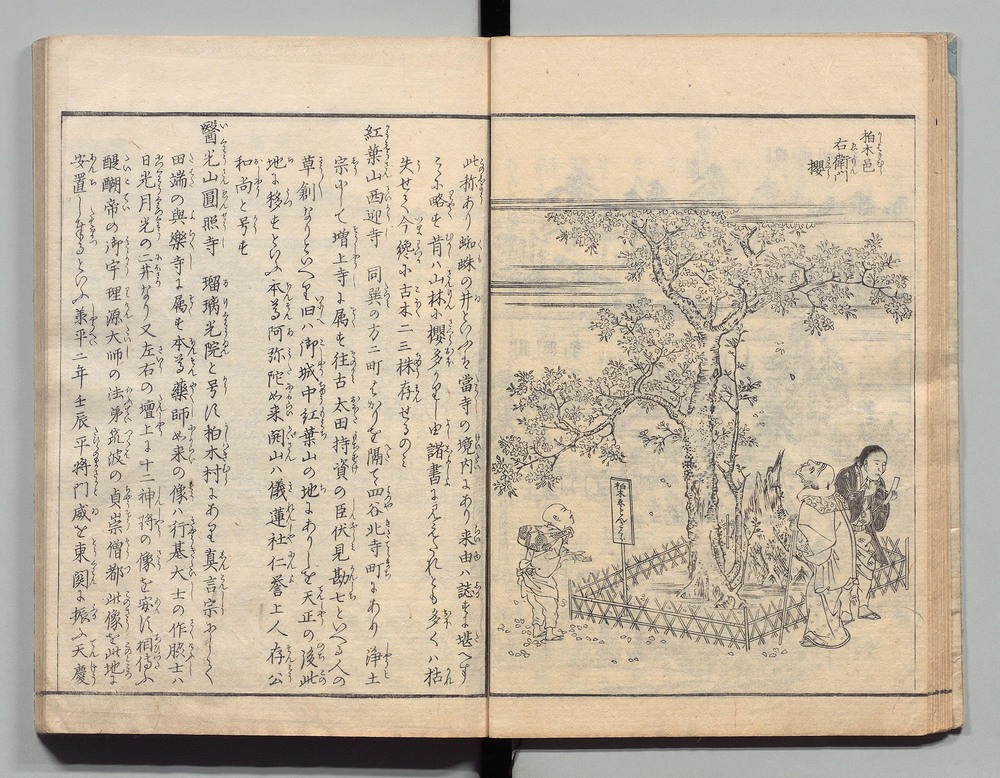 柏木邑
右衛門
櫻
柏木
此称あり蜘蛛の井といふは當寺の境内にあり来由ハ誌すに堪へす
こゝに略す昔ハ山林に櫻多かりし由諸書に見えたれとも多くハ枯
失せて今纔に古木二三株存せるのミ
紅葉山西迎寺 同巽の方二町はかりを隔て四谷北寺町にあり浄土
宗にして増上寺に属す往古太田持資の臣伏見勘七といへる人の
草創なりといへり旧ハ御城中紅葉山の地にありしを天正の後此
地に移すといふ本尊阿弥陀如来開山ハ儀蓮社仁誉上人存公
和尚と号す
醫光山圓照寺 瑠璃光院と号す柏木村にあり真言宗にして
田端の與樂寺に属す本尊藥師如来の像ハ行基大士の作脇士ハ
日光月光の二井なり又左右の壇上に十二神将の像を安す相傳ふ
醍醐帝の御宇理源大師の法弟筑波の貞崇僧都此像を此地に
安置し奉るといふ兼平二年壬辰平将門威を東関に振ふ天慶